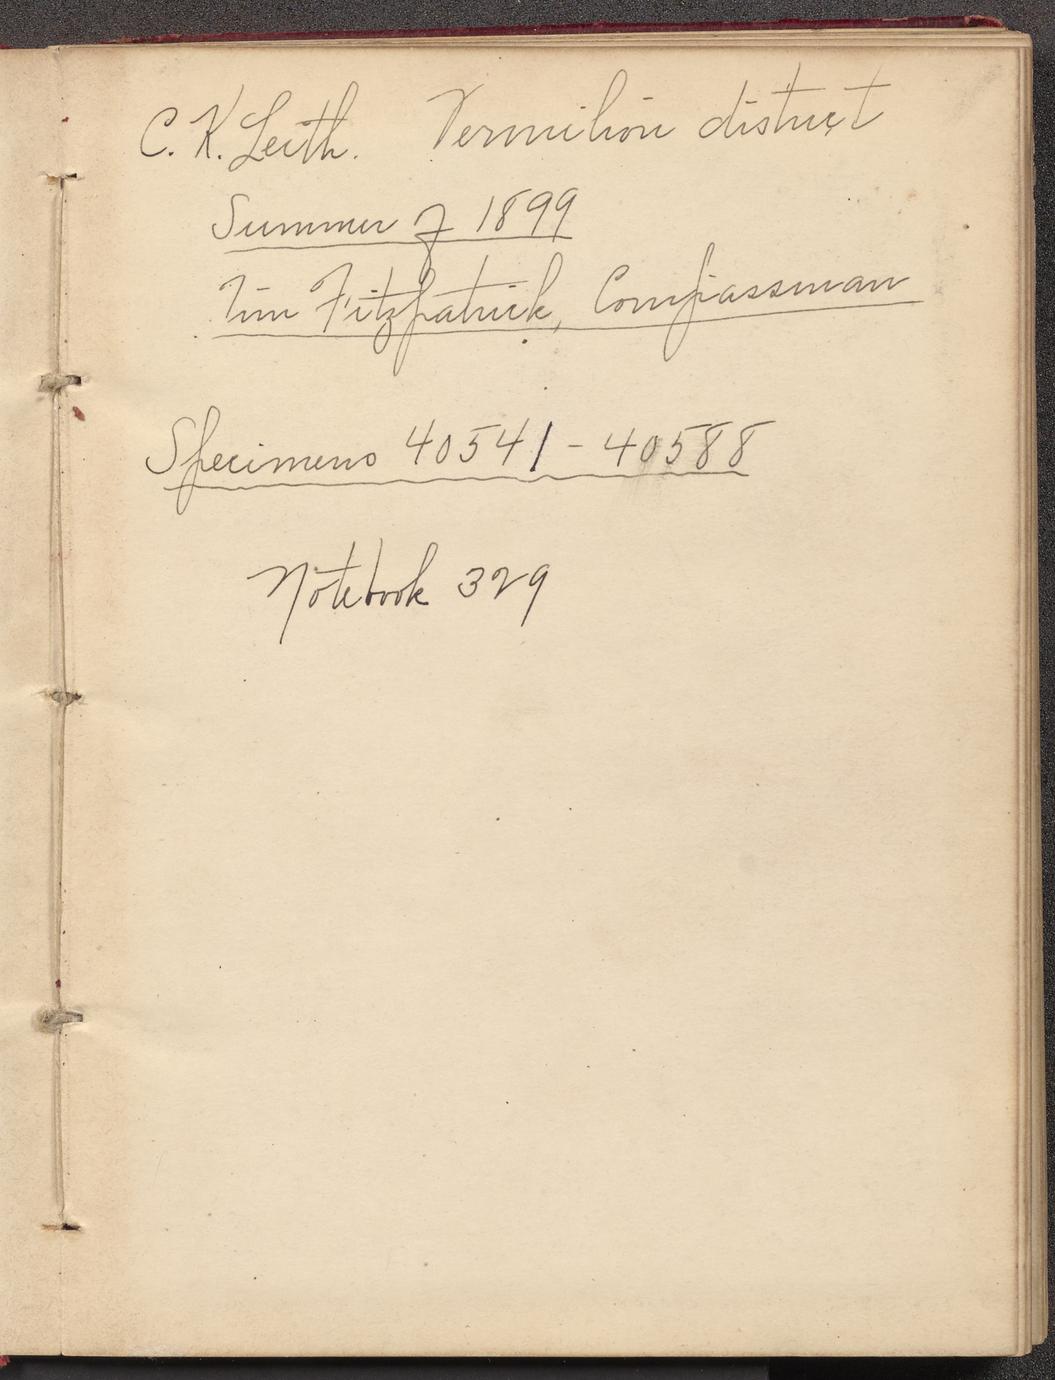 C. K. Leith. Vermilion district
Summer of 1899
Tim Fitzpatrick, Compassman
Specimens 40541 - 40588
Notebook 329